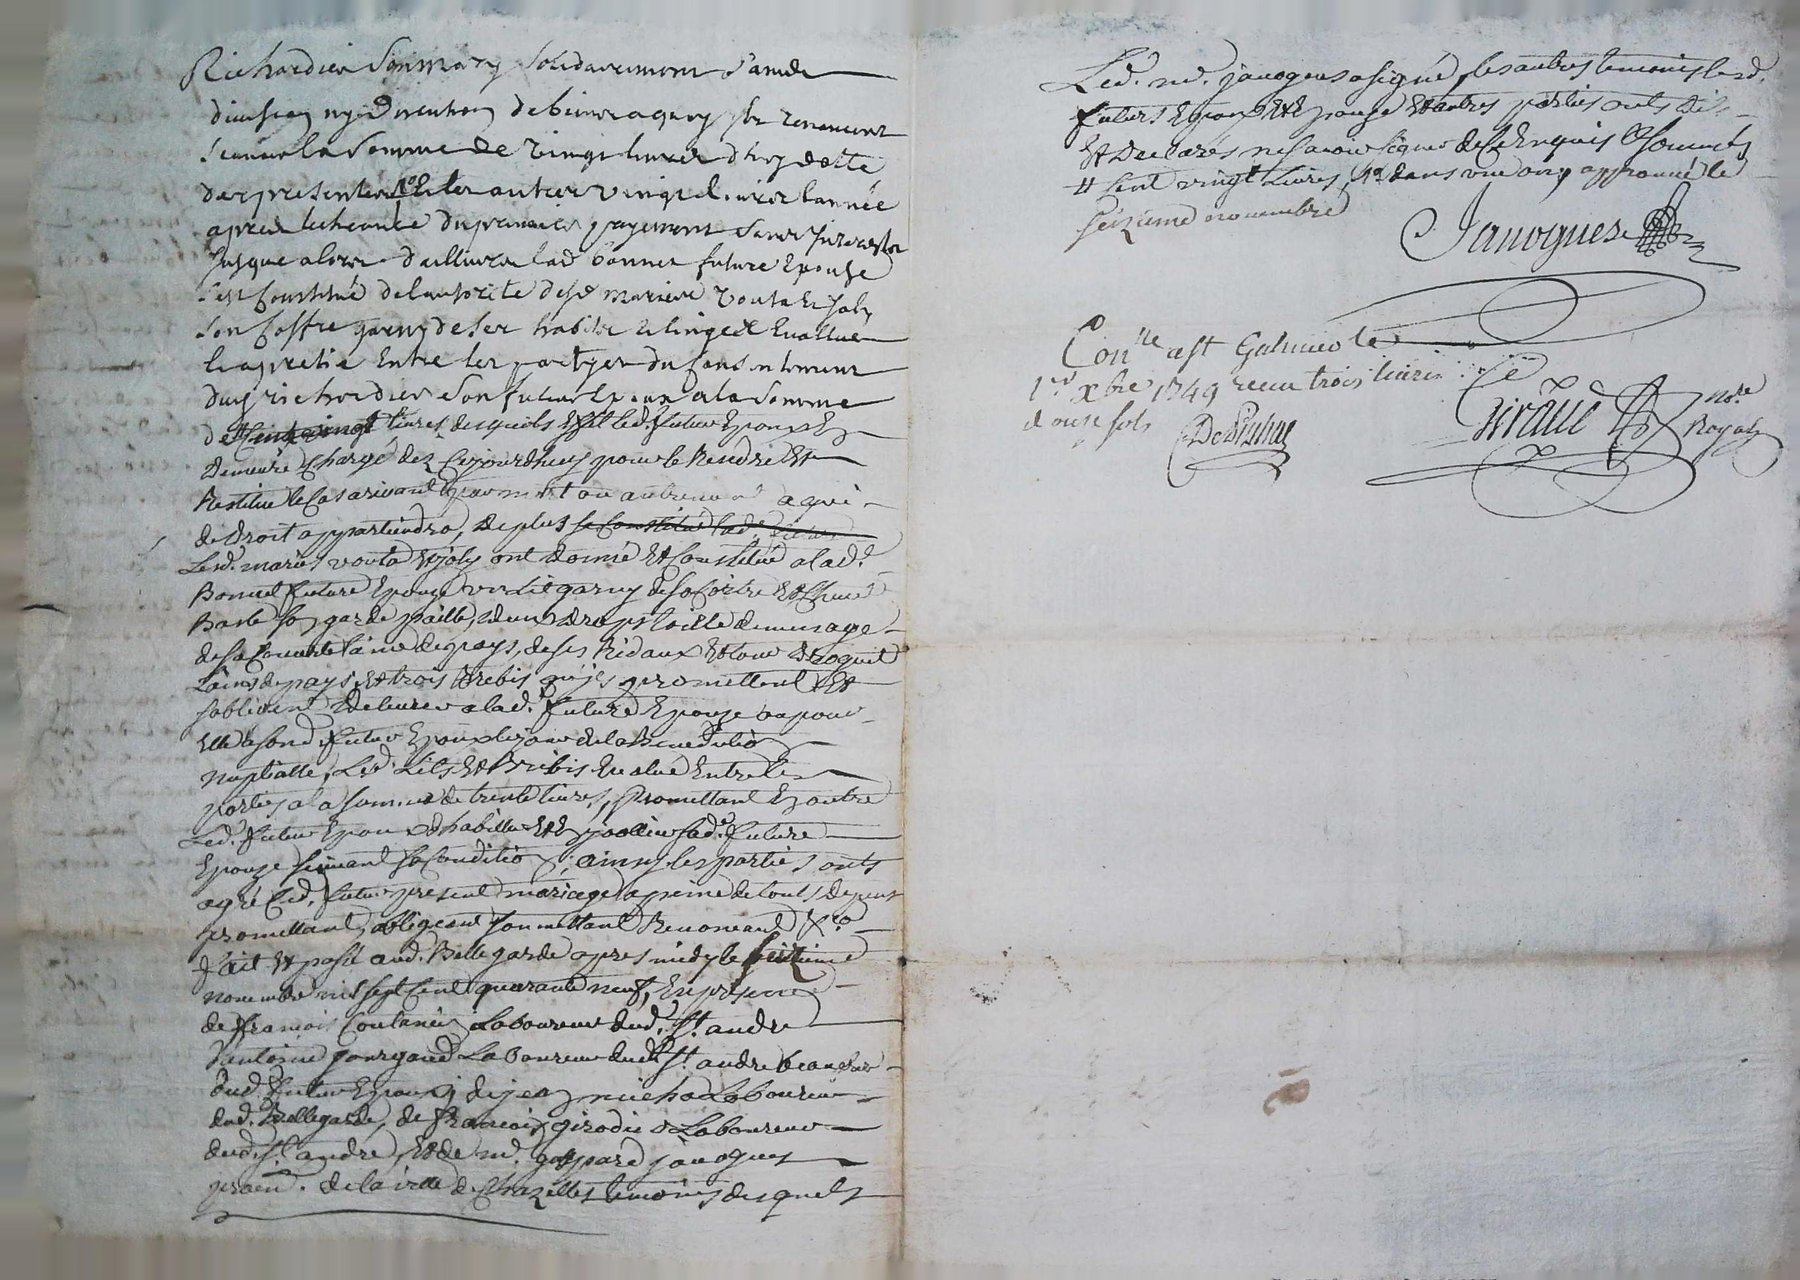 Richardier son mary solidairement sans
division ny discution de biens a quoy ils renoncent
scavoir la somme de vingt livres d'huy datte
des presentes et les autres vingt livres l'année
apres lecheance du premier payement sans interests
jusque alors d'ailleurs lad. bonnet future Epouse
s'est Constitué de l'autorite desd. mariés vouta et joly
son Coffre garny de ses habits et linges Evallué
et apretié Entre les partyes du consentement
dud. richardier son futur Epoux a la somme
de livres desquels Effets led. futur Epoux En
Demeure Chargé dez Cejourdhuy pour le Rendre Et
Restituer le Cas arivant par mort ou autrement a qui
de Droit appartiendra, de plus se Constitue lad.
Lesd. mariés vouta Et joly ont donné Et Constitué a lad.
Bonnet future Epouze un Lit garny de sa Coitre Et Chevet
Barbe garde paille, deux Draps toille de menage
de sa Couverte laine de pays, de ses Ridaux Et tour Droguet
Laine de pays Et trois Brebis qu'jls promettent Et
sobligent Delivrer a lad. future Epouze ou pour
Elle a sond. futur Epoux le jour de la Benediction
nuptialle, Led. Lits Et Brebis Evalué Entre les
parties a la somme de trente livres, Promettant En outre
Led. futur Epoux d'habiller Et Enjoallier sad. future
Epouze suivant sa Condition, ainsy les parties onts
agréé led. futur present mariage a peine de touts depens
promettant, obligeant soumettant Renonceant &
fait Et passé aud. Bellegarde apres midy le seizieme
novembre mil sept Cent quarante neuf, En presence
de françois Coutanier Laboureur dud. St. andré
d'antoine gourgaud Laboureur dud. St. andré beaufrere
dud. futur Epoux, de jean micha Laboureur
dud. Bellegarde, de francois girodier Laboureur
dud. St. andré, Et de mr. gaspard janogues
de la ville de Chazelles temoins desquels
Led. mr. janogues a signé, les autres temoins lesd.
futurs Epoux Et Epouze Et autres parties onts dit
Et Declarés ne savoir signer de Ce Enquis Et Sommés
# Cent vingt Livres, approuvé le
seizieme novembre
Janogues
Conlle a St Galmier le
1er Xbre 1749 receu trois livres
douze sols
Giraud Nore
Royal